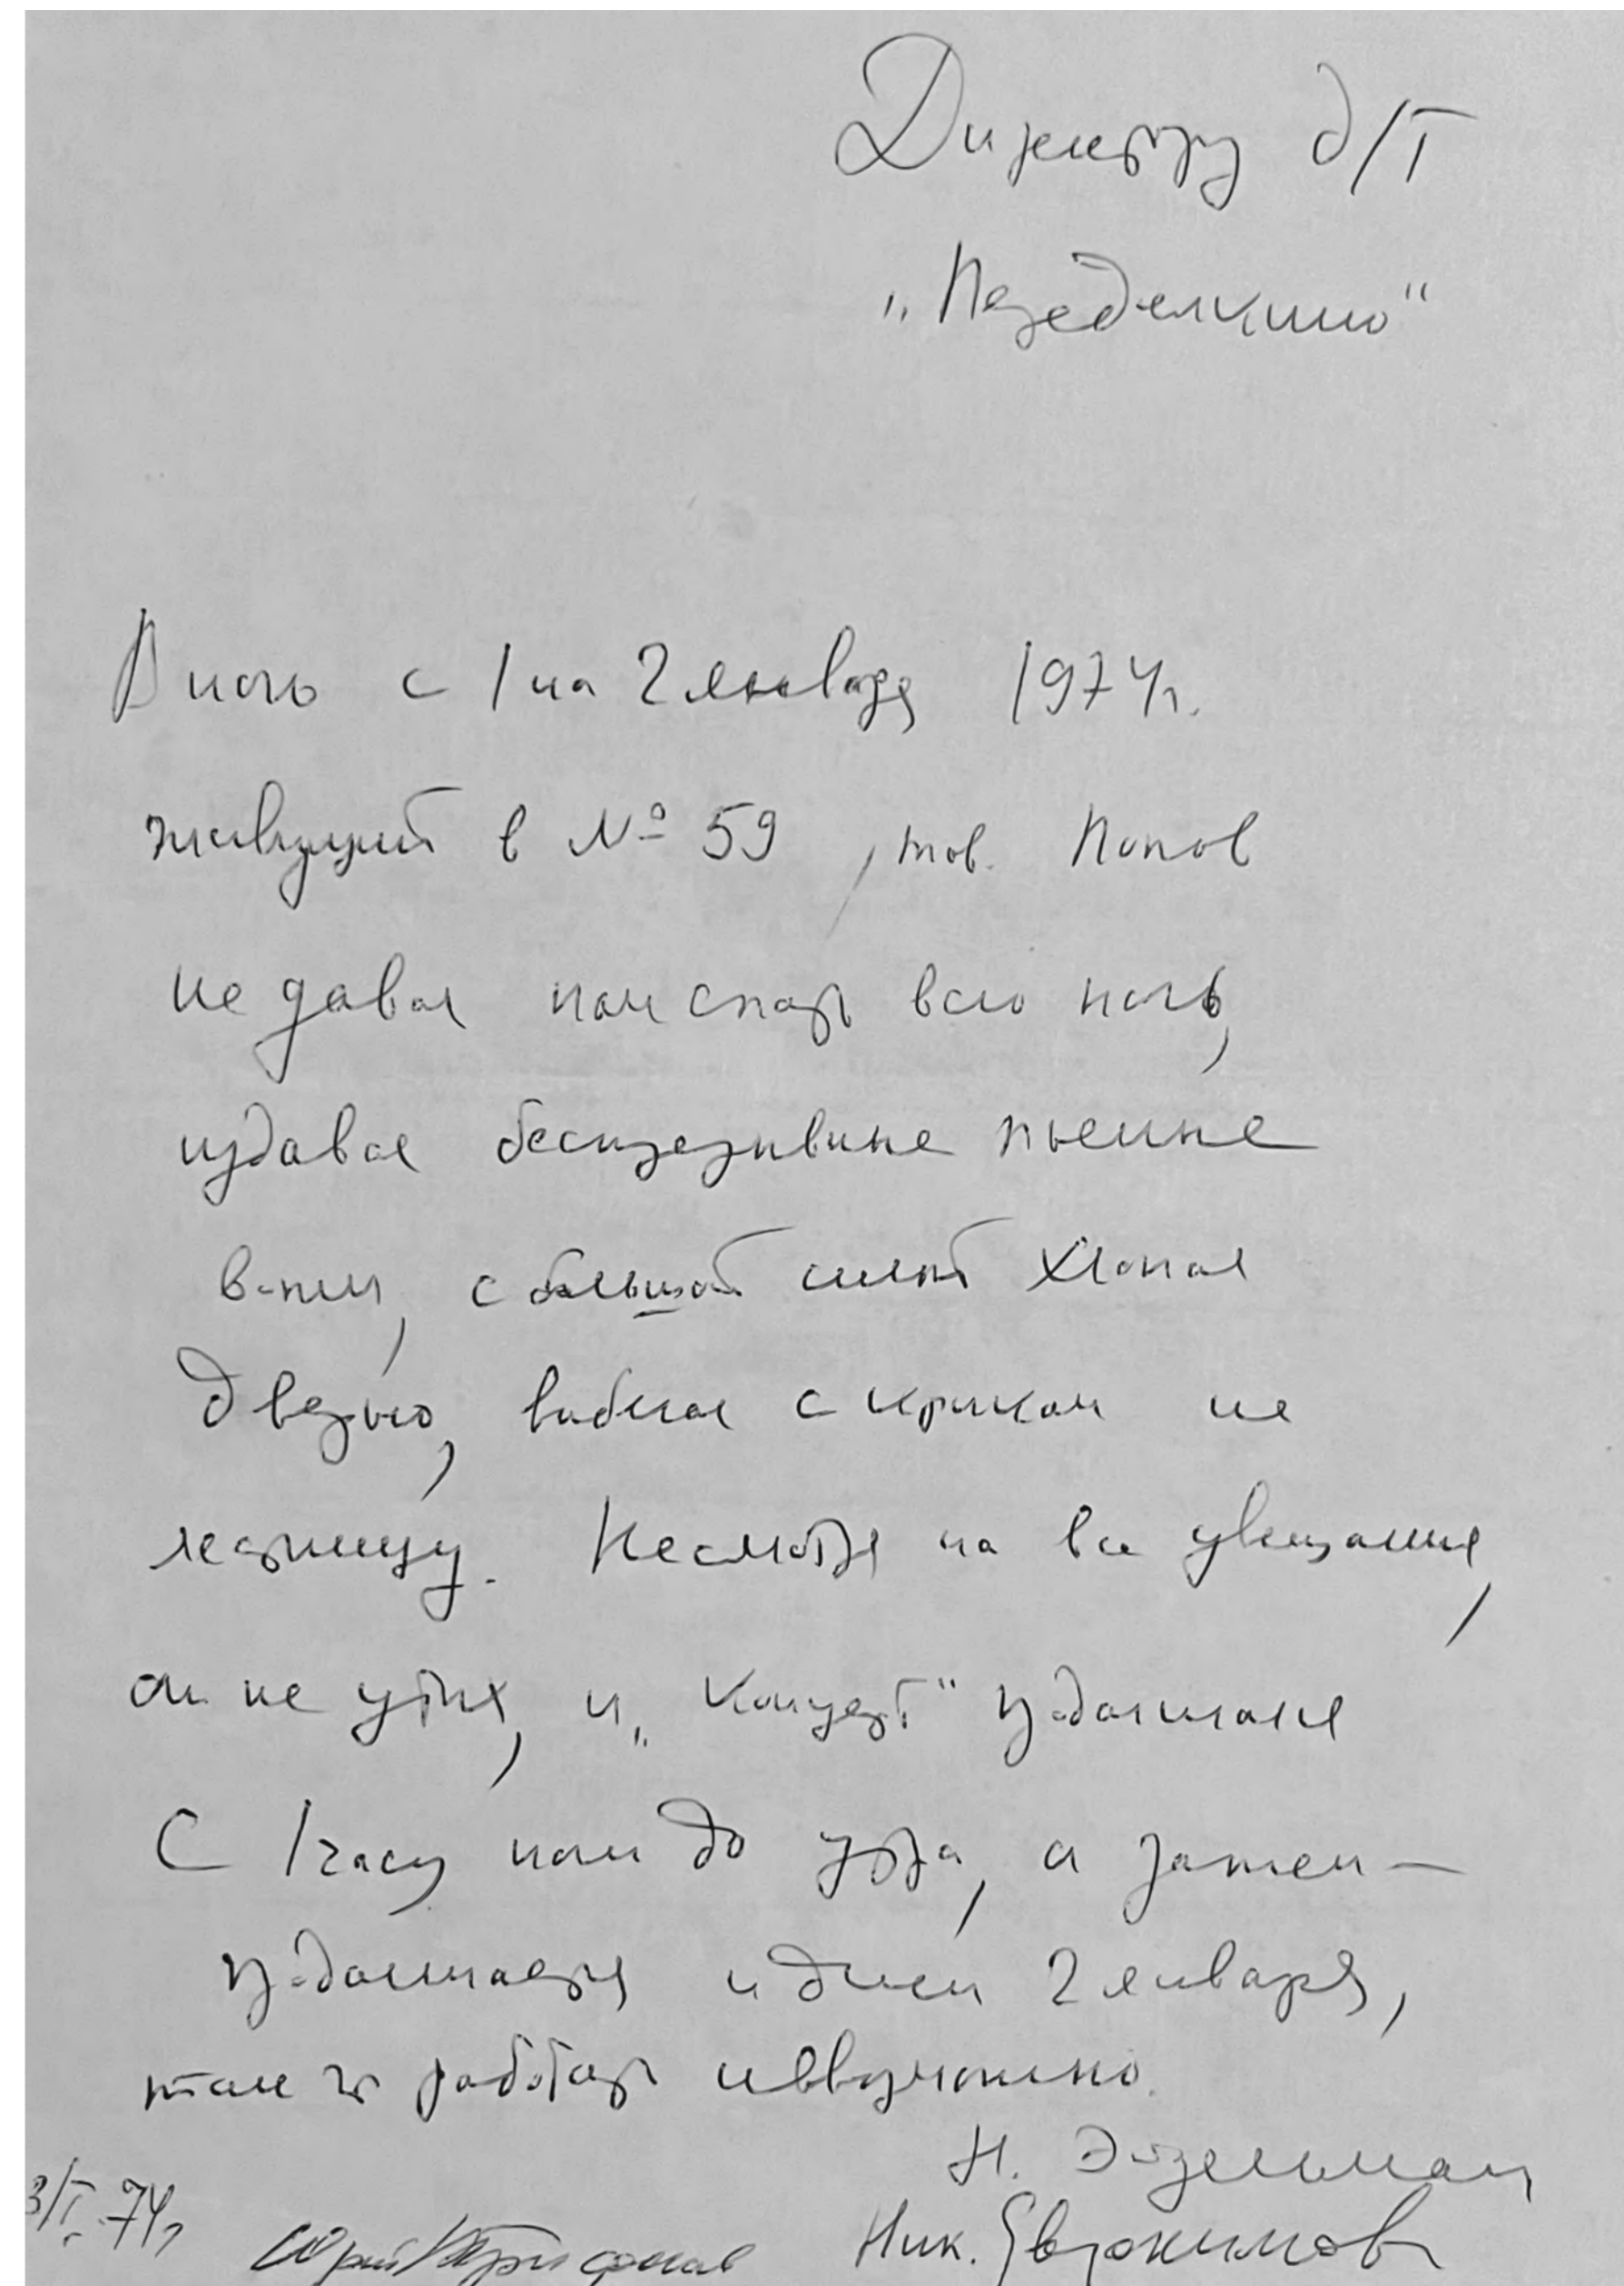 Директору д/т
„Переделкино“
В ночь с 1 на 2 января 1974 г.
живущий в № 59, тов. Попов
не давал нам спать всю ночь,
издавая беспрерывные пьяные
вопли, с большой силой хлопая
дверью, выбегая с криком на
лестницу. Несмотря на все увещания,
он не утих, и „концерт“ продолжался
с 1 часу ночи до утра, а затем —
продолжается и днем 2 января,
так что работать невозможно.
Н. Эйдельман
3/I. 74г
Юрий Трифонов
Ник. Евдокимов